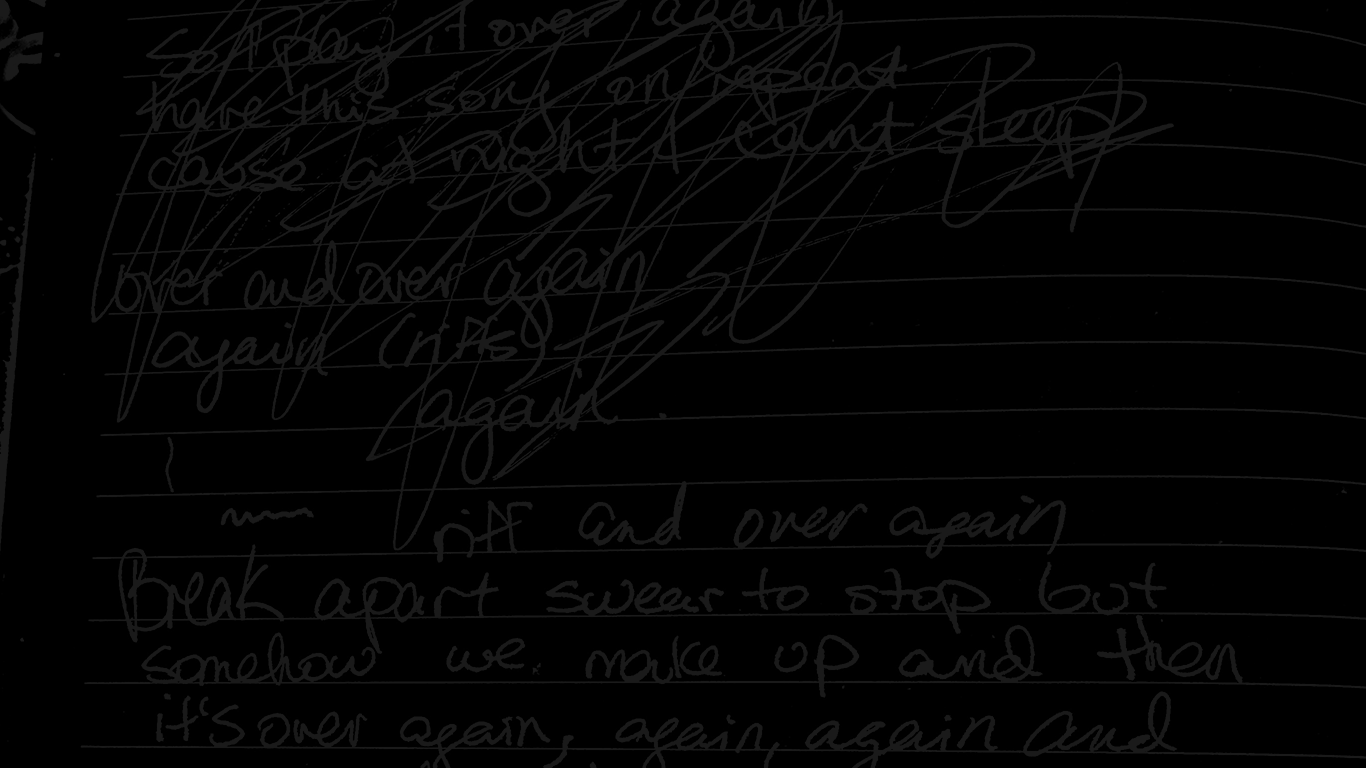 So I play it over again
have this song on repeat
cause at night I can't sleep
over and over again
again (riffs)
again.
riff and over again
Break apart swear to stop but
somehow we make up and then
it's over again, again, again and